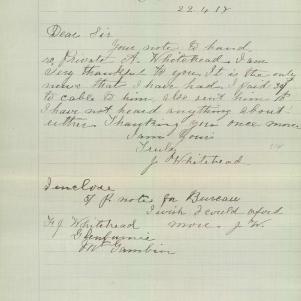 22.4.18
Dear Sir
Your note to hand
re Private A. Whitehead I am
Very thankful to you It is the only
news that I have had. I paid
to cable to him also sent him
I have not heard anything about
either Thanking you once more
I am Yours
Truly
J Whitehead
I enclose
note for Bureau
I wish I could afford
J Whitehead more. J. W.
Glenburnie
Mt Gambier